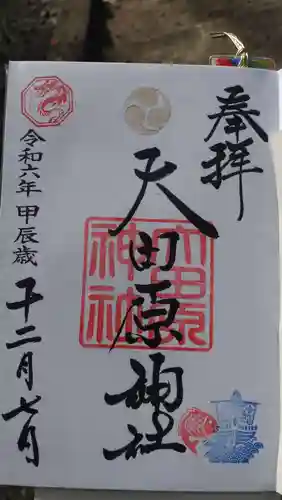 奉拝
天田原神社
令和六年 甲辰歳
十二月七月